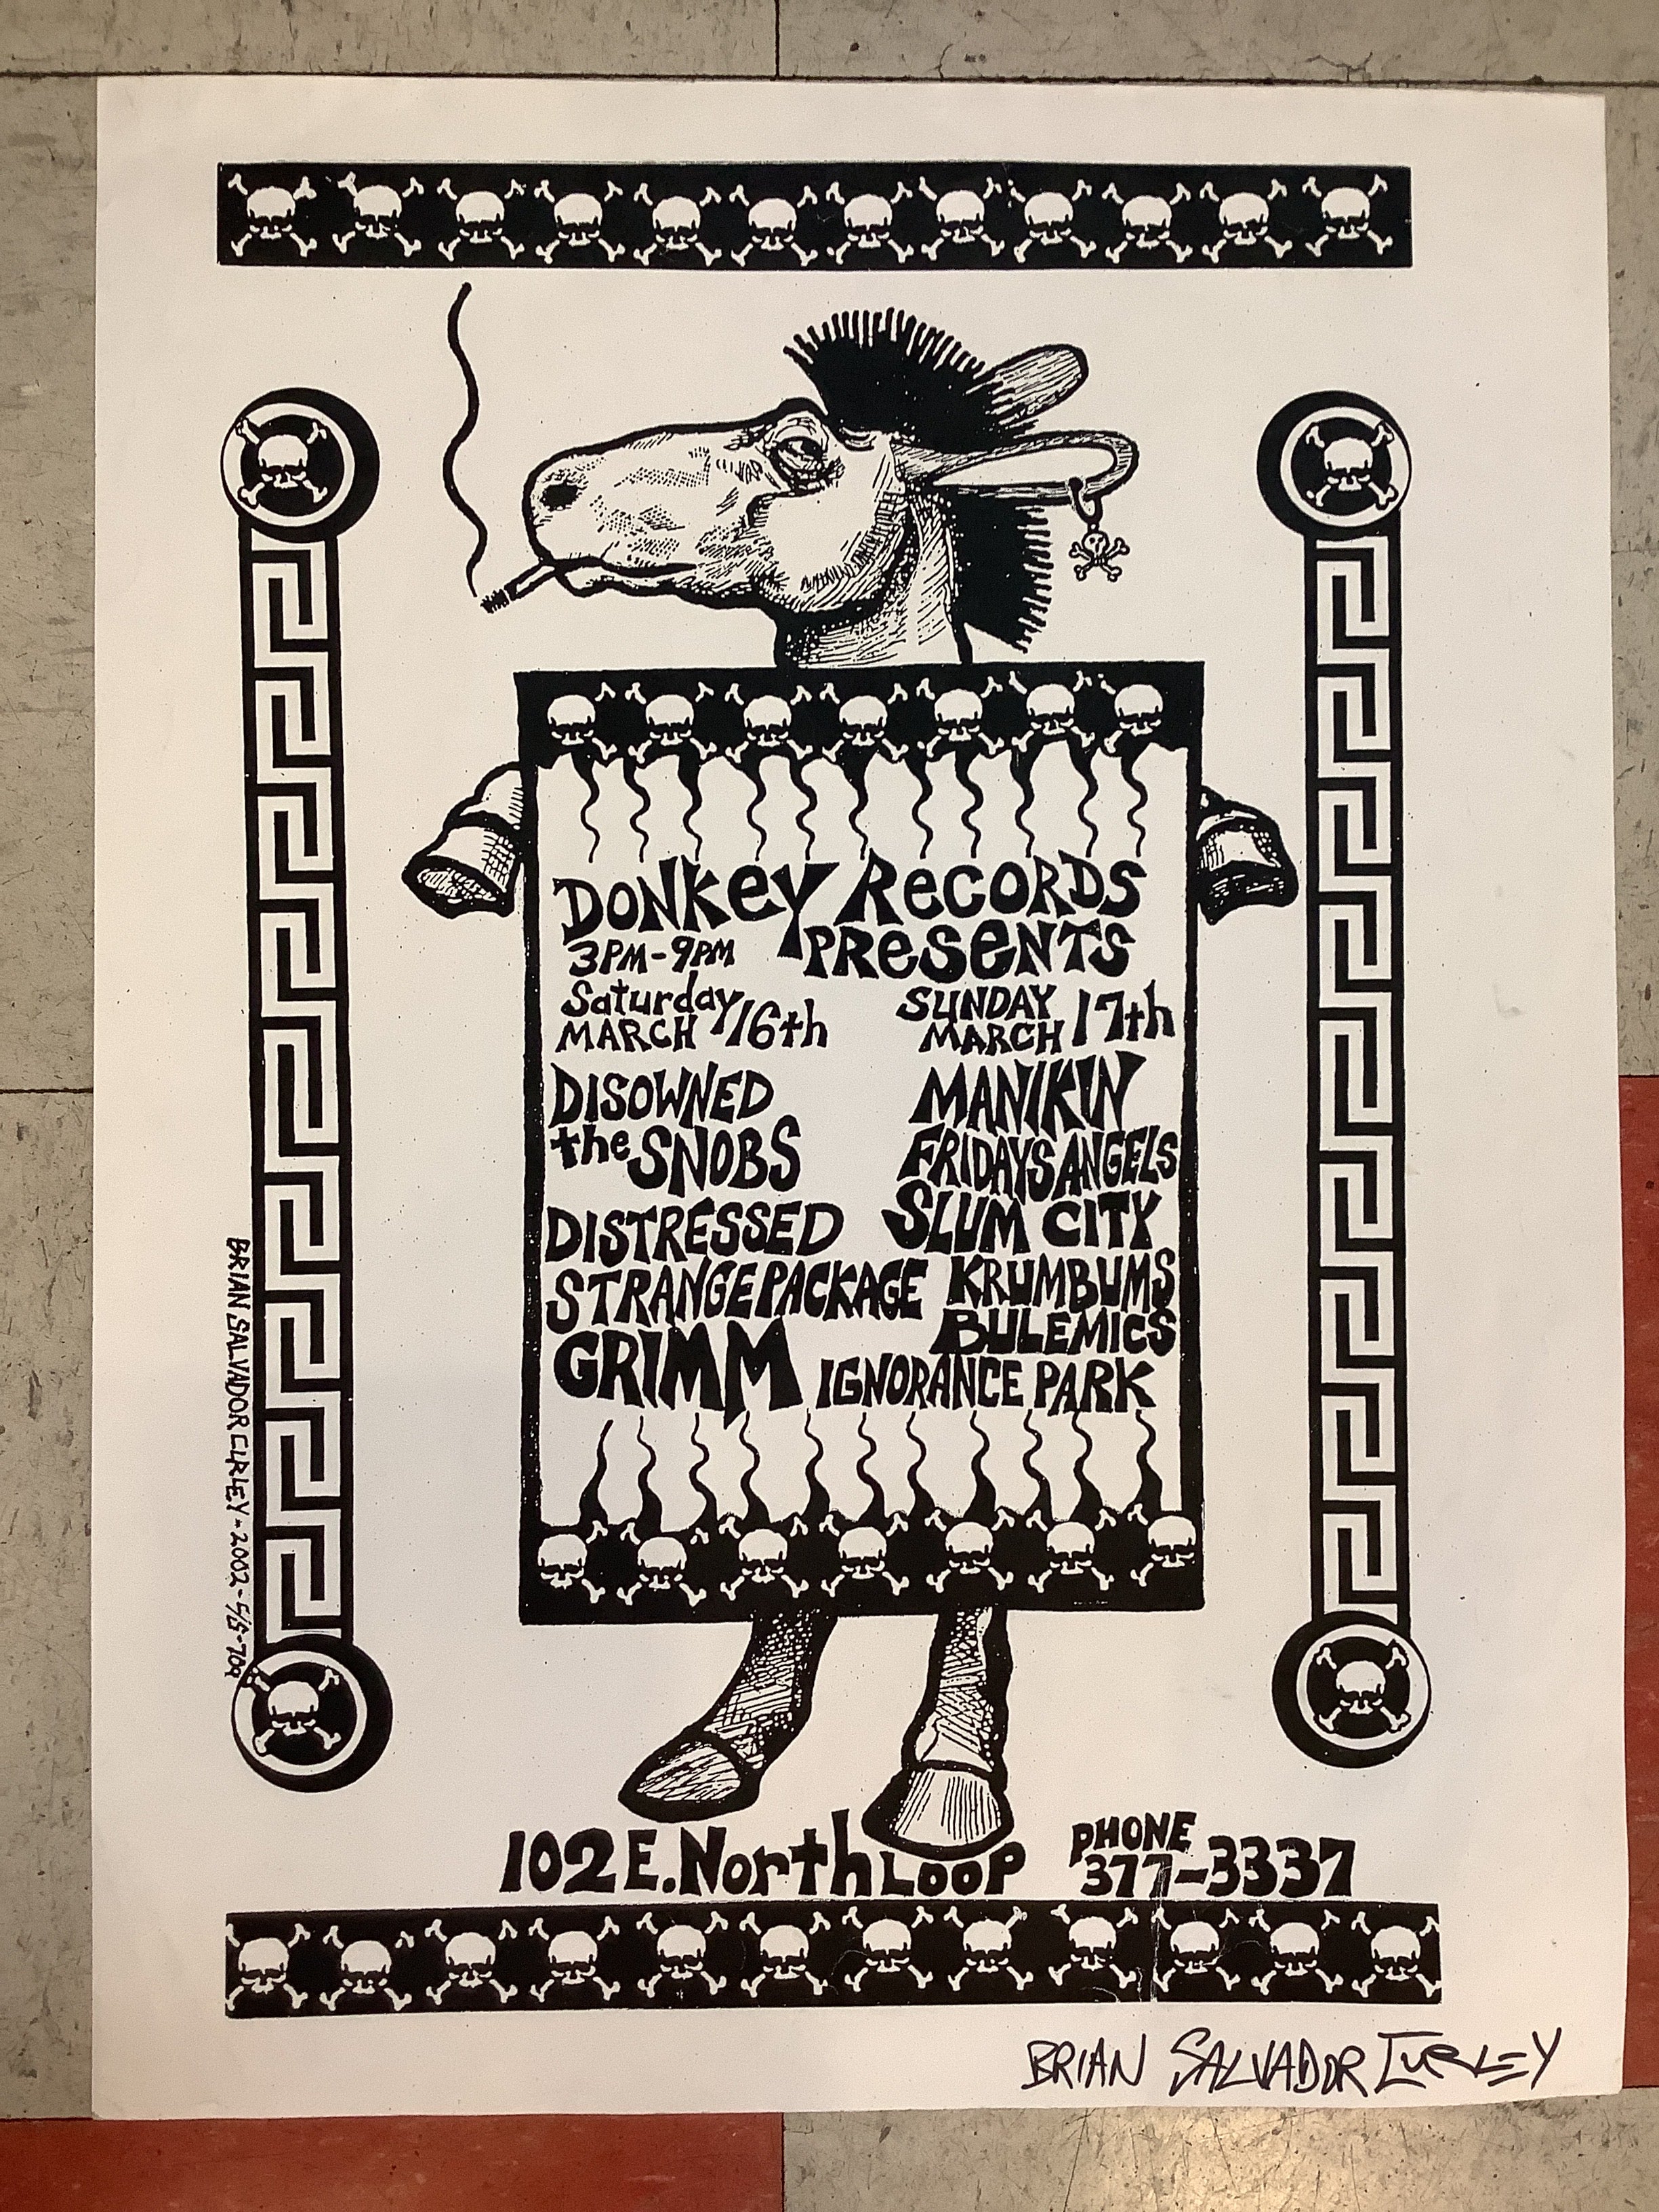 DONKEY RECORDS
3PM-9PM PRESENTS
Saturday MARCH 16th
DISOWNED
the SNOBS
DISTRESSED
STRANGEPACKAGE
GRIMM
SUNDAY MARCH 17th
MANIKIN
FRIDAYS ANGELS
SLUM CITY
KRUMBUMS
BULEMICS
IGNORANCE PARK
BRIAN SALVADOR CURLEY-2002-
102 E. North LOOP
PHONE 377-3337
BRIAN SALVADOR CURLEY